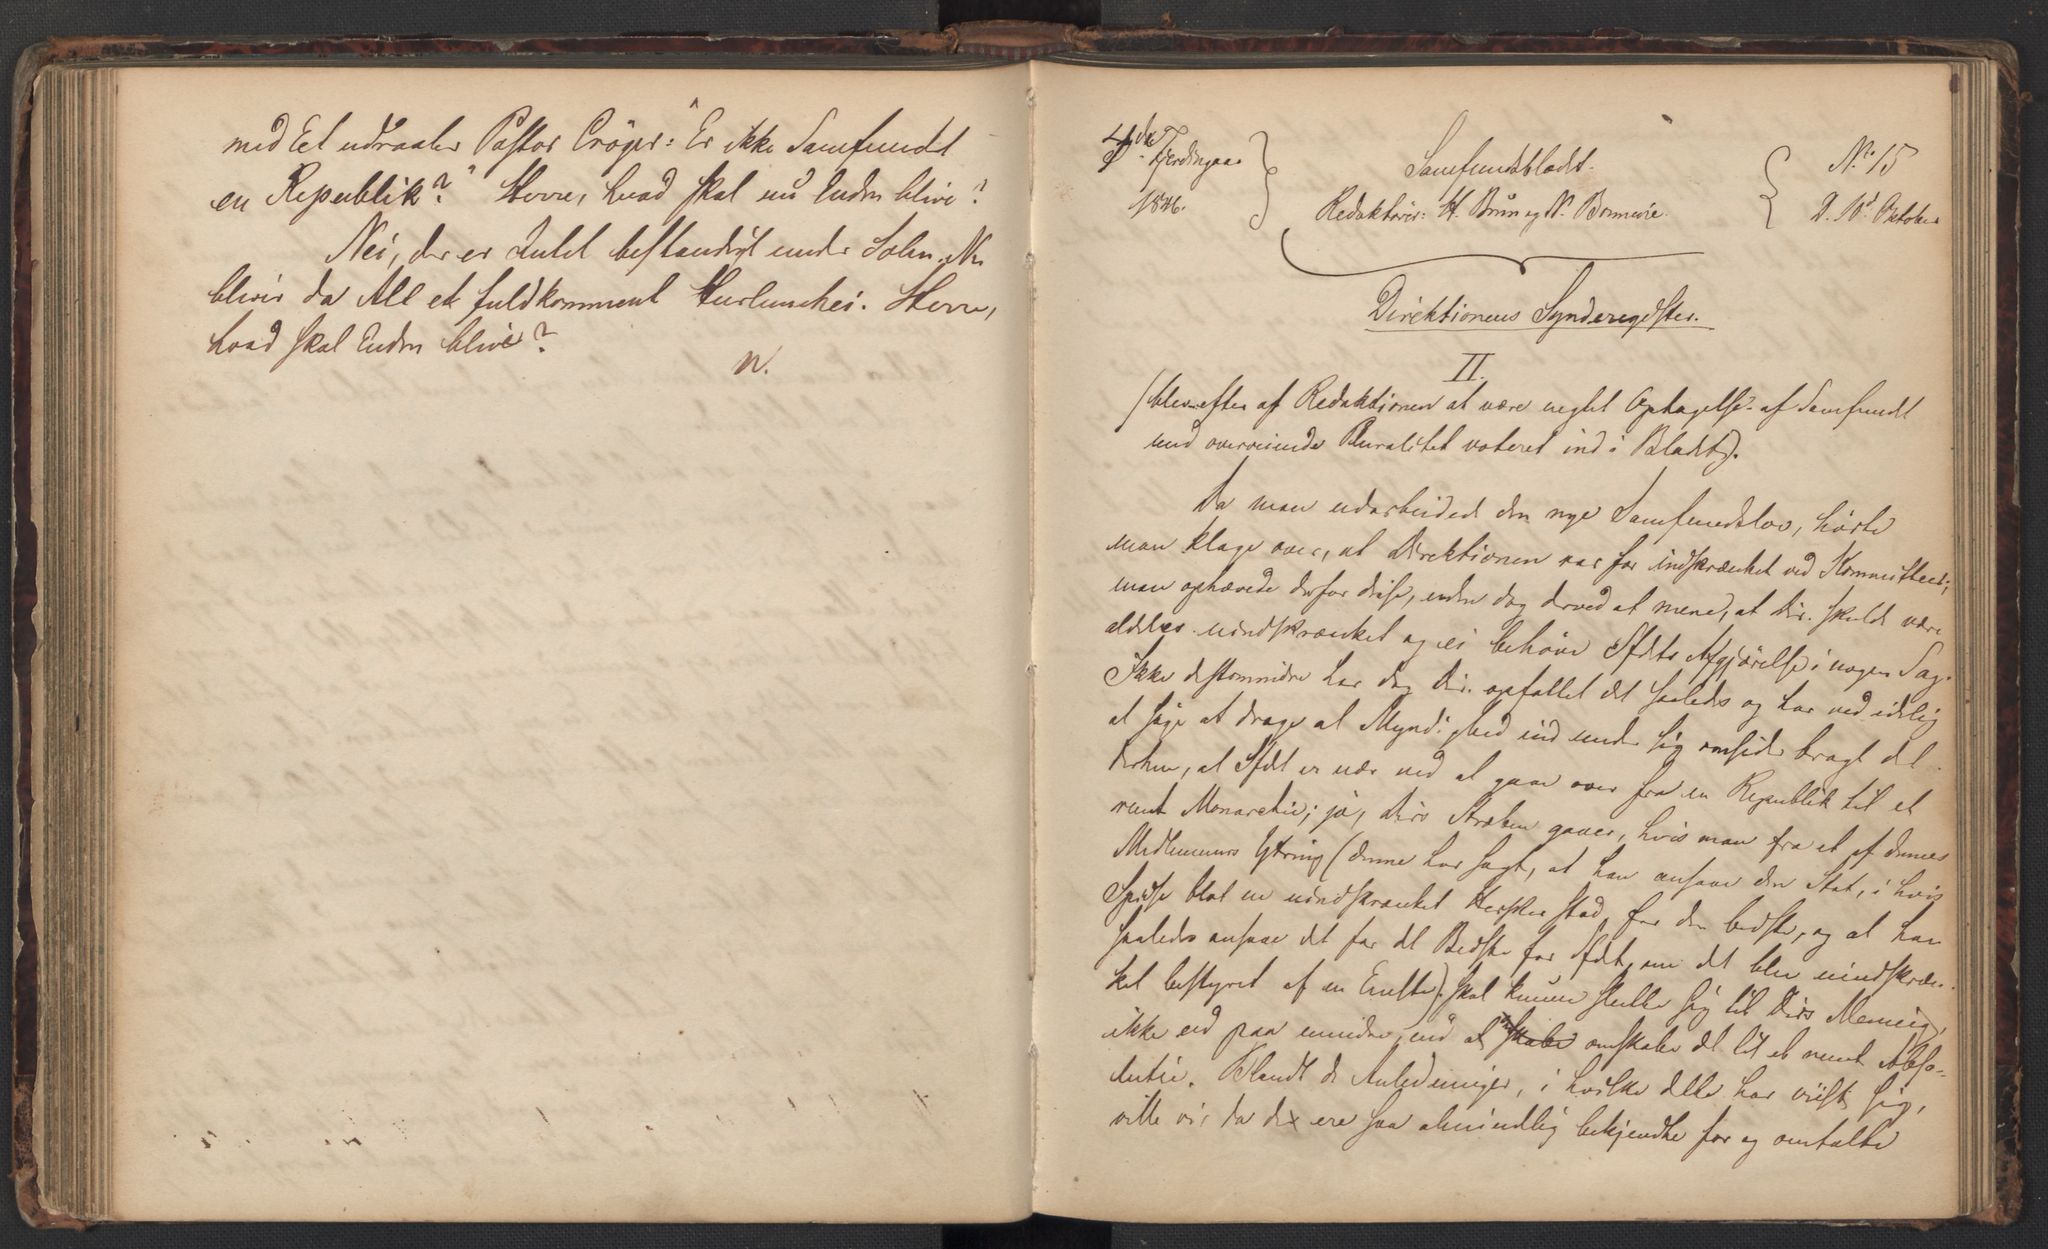 med Et udraaber Pastor Cröger: "Er ikke Samfundet
en Republik?" Herre, hvad skal nu Enden blive?
Nei, der er Intet bestandigt under Solen. Nu
bliver da Alt et fuldkomment Hurlumhei. Herre,
hvad skal Enden blive?
N.
4de Fjerdingaar
1846.
Samfundsbladet.
Redaktører: H. Brun og N. Bonnevie.
No 15
D. 10d Oktober
Direktionens Synderegister.
II.
(blev efter af Redaktionen at være negtet Optagelse af Samfundet
med overveiende Pluralitet voteret ind i Bladet).
Da man udarbeidede den nye Samfundslov, hørte
man Klage over, at Direktionen var for indskrænket ved Kommitteer;
man ophævede derfor disse, uden dog derved at mene, at Dir. skulde være
aldeles uindskrænket og ei behøve Sfdts Afgjørelse i nogen Sag.
Ikke destomindre har dog Dir. opfattet det saaledes og har ved idelig
at søge at drage al Myndighed ind under sig omsider bragt det
derhen, at Sfdt er nær ved at gaae over fra en Republik til et
reent Monarchie; ja, Dirs Stræben gaaer, hvis man fra et af dennes
Medlemmers Ytring (denne har sagt, at han ansaae den Stat, i hvis
Spidse blot en uindskrænket Hersker stod, for den bedste, og at han
saaledes ansaae det for det Bedste for Sfdt, om det blev uindskræn-
ket bestyret af en Eneste) skal kunne slutte sig til Dirs Mening,
ikke ud paa mindre, end at omskabe det til et reent Abso-
lutie. Blandt de Anledninger, i hvilke dette har viist sig,
ville vi, da de ere saa almindelig bekjendte før og omtalte